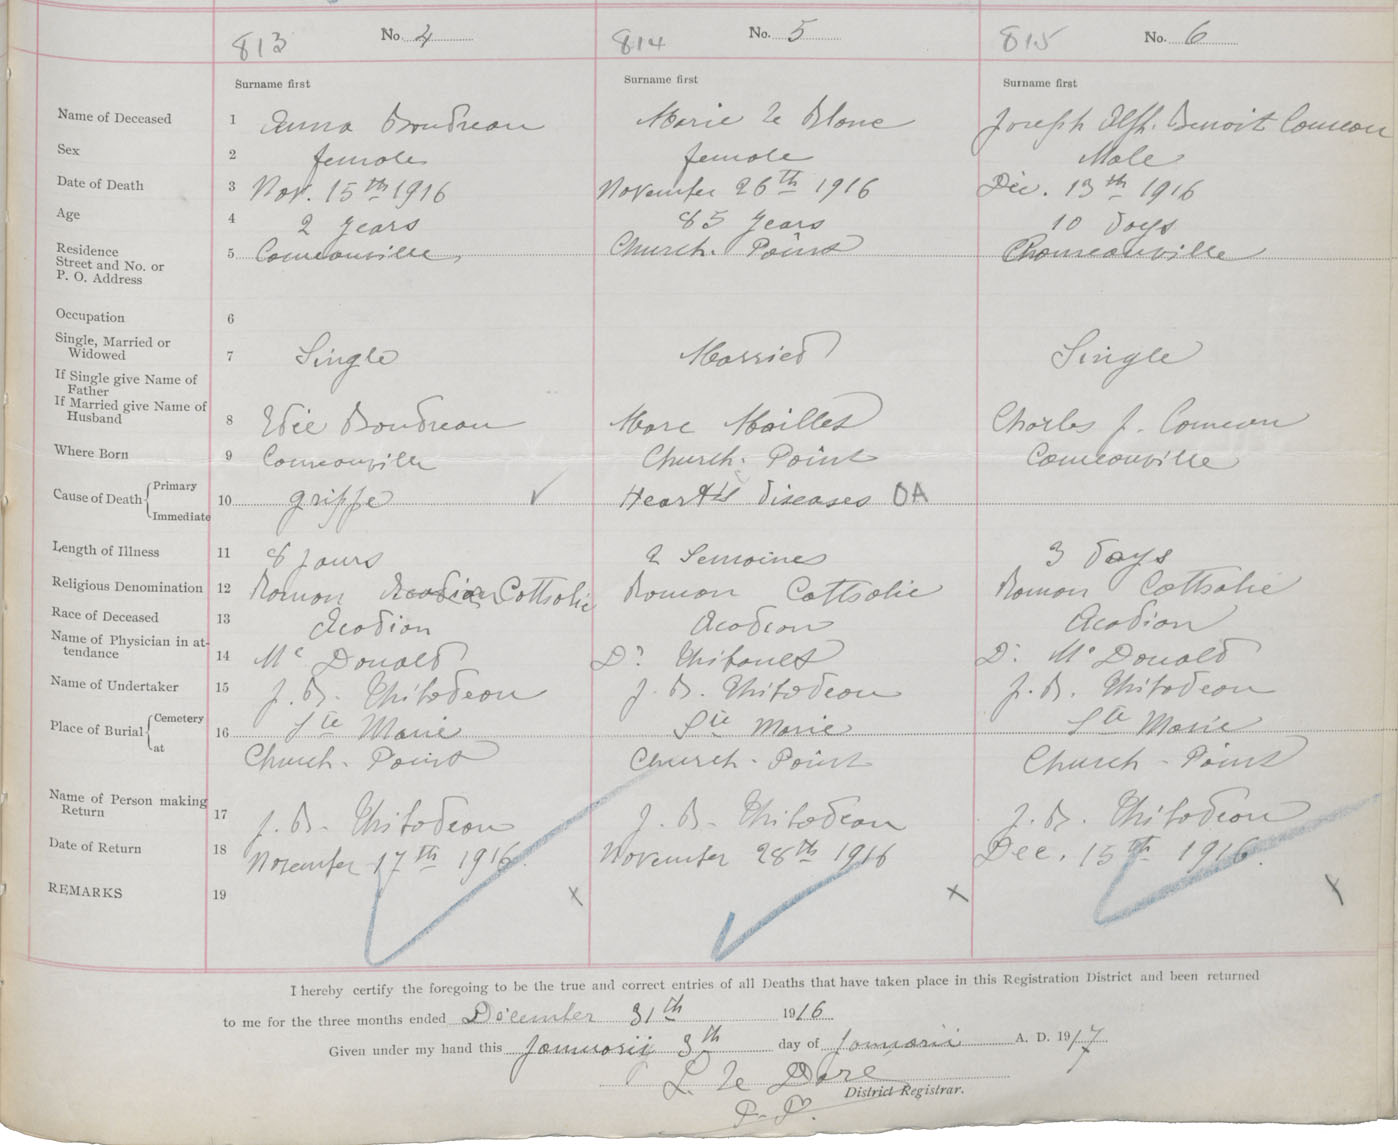 813 No. 4 814 No. 5 815 No. 6
Surname first Surname first Surname first
Name of Deceased 1 Anna Boudreau Marie Le Blanc Joseph Alph. Benoit Comeau
Sex 2 female female Male
Date of Death 3 Nov. 15th 1916 November 26th 1916 Dèc. 13th 1916
Age 4 2 years 85 years 10 days
Residence
Street and No. or 5 Comeauville, Church. Point Chomeauville
P. O. Address
Occupation 6
Single, Married or
Widowed 7 Single Married Single
If Single give Name of
Father
If Married give Name of
Husband 8 Boudreau Marc Maillet Charles J. Comeau
Where Born 9 Comeauville Church. Point Comeauville
Cause of Death Primary
10 grippe Heart's diseases OA
Immediate
Length of Illness 11 8 jours 2 Semaines 3 days
Religious Denomination 12 Roman Acadian Catholic Roman Catholic Roman Catholic
Race of Deceased 13 Acadian Acadian Acadian
Name of Physician in at-
tendance 14 Mc Donald Dr Thibault Dr Mc Donald
Name of Undertaker 15 J. B. Thibodeau J. B. Thibodeau J. B. Thibodeau
Place of Burial Cemetery
16 Ste Marie Ste Marie Ste Marie
at Church - Point Church - Point Church - Point
Name of Person making
Return 17 J. B. Thibodeau J. B. Thibodeau J. B. Thibodeau
Date of Return 18 November 17th 1916. November 28th 1916 Dec. 15th 1916.
REMARKS 19 x x x
I hereby certify the foregoing to be the true and correct entries of all Deaths that have taken place in this Registration District and been returned
to me for the three months ended Dècember 31th 1916
Given under my hand this 3th day of A. D. 1917
L. Le Doré
District Registrar.
P. P.